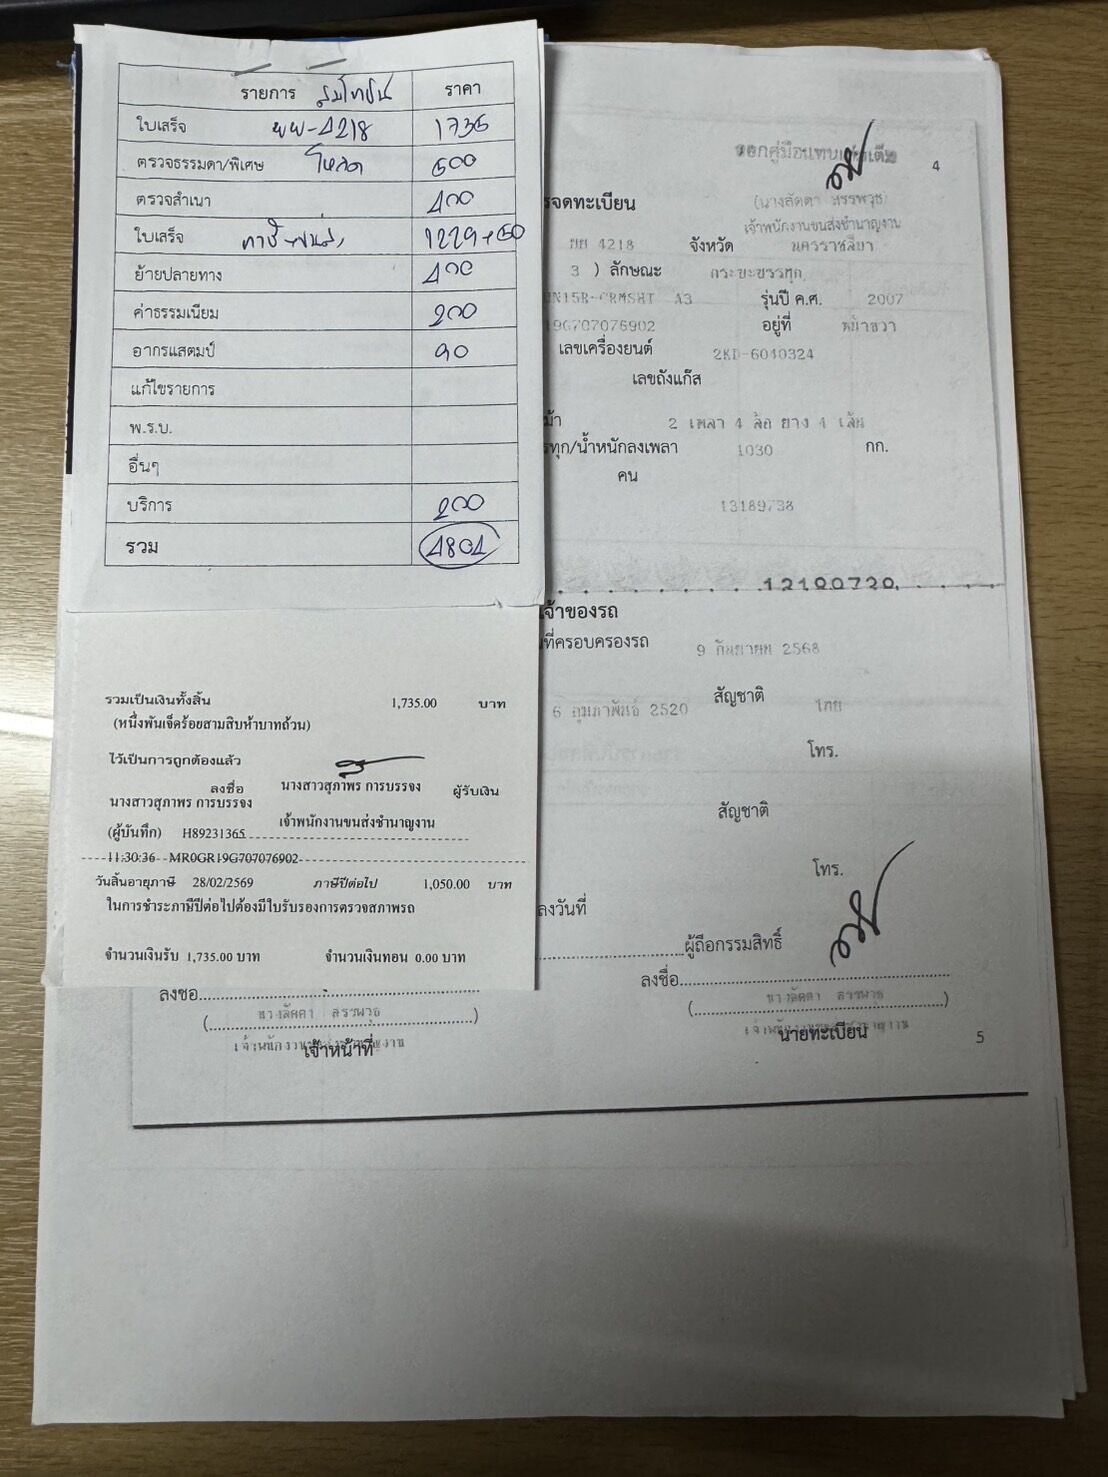 รายการ ราคา
ใบเสร็จ ผผ-4218 1735
ตรวจธรรมดา/พิเศษ โหลด 500
ตรวจสำเนา 400
ใบเสร็จ 1229+50
ย้ายปลายทาง 400
ค่าธรรมเนียม 200
อากรแสตมป์ 90
แก้ไขรายการ
พ.ร.บ.
อื่นๆ
บริการ 200
รวม 4804
รวมเป็นเงินทั้งสิ้น 1,735.00 บาท
(หนึ่งพันเจ็ดร้อยสามสิบห้าบาทถ้วน)
ไว้เป็นการถูกต้องแล้ว
ลงชื่อ นางสาวสุภาพร การบรรจง ผู้รับเงิน
นางสาวสุภาพร การบรรจง
เจ้าพนักงานขนส่งชำนาญงาน
(ผู้บันทึก) H89231365
11:30:36 MR0GR19G707076902
วันสิ้นอายุภาษี 28/02/2569 ภาษีปีต่อไป 1,050.00 บาท
ในการชำระภาษีปีต่อไปต้องมีใบรับรองการตรวจสภาพรถ
จำนวนเงินรับ 1,735.00 บาท จำนวนเงินทอน 0.00 บาท
4
จดทะเบียน
เจ้าพนักงานขนส่งชำนาญงาน
4218 จังหวัด นครราชสีมา
3 ) ลักษณะ กระบะบรรทุก
A3 รุ่นปี ค.ศ. 2007
19G707076902 อยู่ที่ หน้าขวา
เลขเครื่องยนต์ 2KD-6040324
เลขถังแก๊ส
2 เพลา 4 ล้อ ยาง 4 เส้น
ทุก/น้ำหนักลงเพลา 1030 กก.
คน
13189738
เจ้าของรถ
ที่ครอบครองรถ 9 กันยายน 2568
สัญชาติ ไทย
6 กุมภาพันธ์ 2520
โทร.
สัญชาติ
โทร.
ลงวันที่
ผู้ถือกรรมสิทธิ์
ลงชื่อ ลงชื่อ
นางลัดดา สรรพวุธ นางลัดดา สรรพวุธ
เจ้าหน้าที่ นายทะเบียน
5